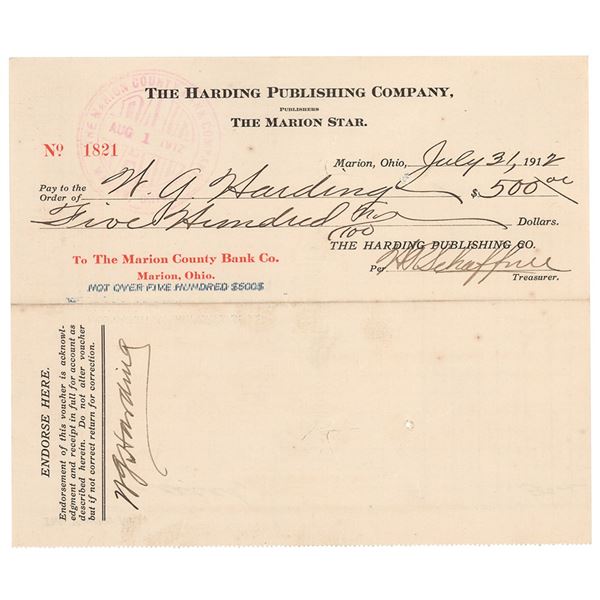 THE HARDING PUBLISHING COMPANY,
PUBLISHERS
THE MARION STAR.
THE MARION COUNTY BANK COMPANY
AUG 1 1912
No 1821
Marion, Ohio, July 31, 1912
Pay to the Order of W. G. Harding $ 500 00
Five Hundred no/100 Dollars.
THE HARDING PUBLISHING CO.
To The Marion County Bank Co.
Marion, Ohio.
Per H G Schaffner
Treasurer.
NOT OVER FIVE HUNDRED $500$
ENDORSE HERE.
Endorsement of this voucher is acknowl-
edgment and receipt in full for account as
described herein. Do not alter voucher
but if not correct return for correction.
W G Harding